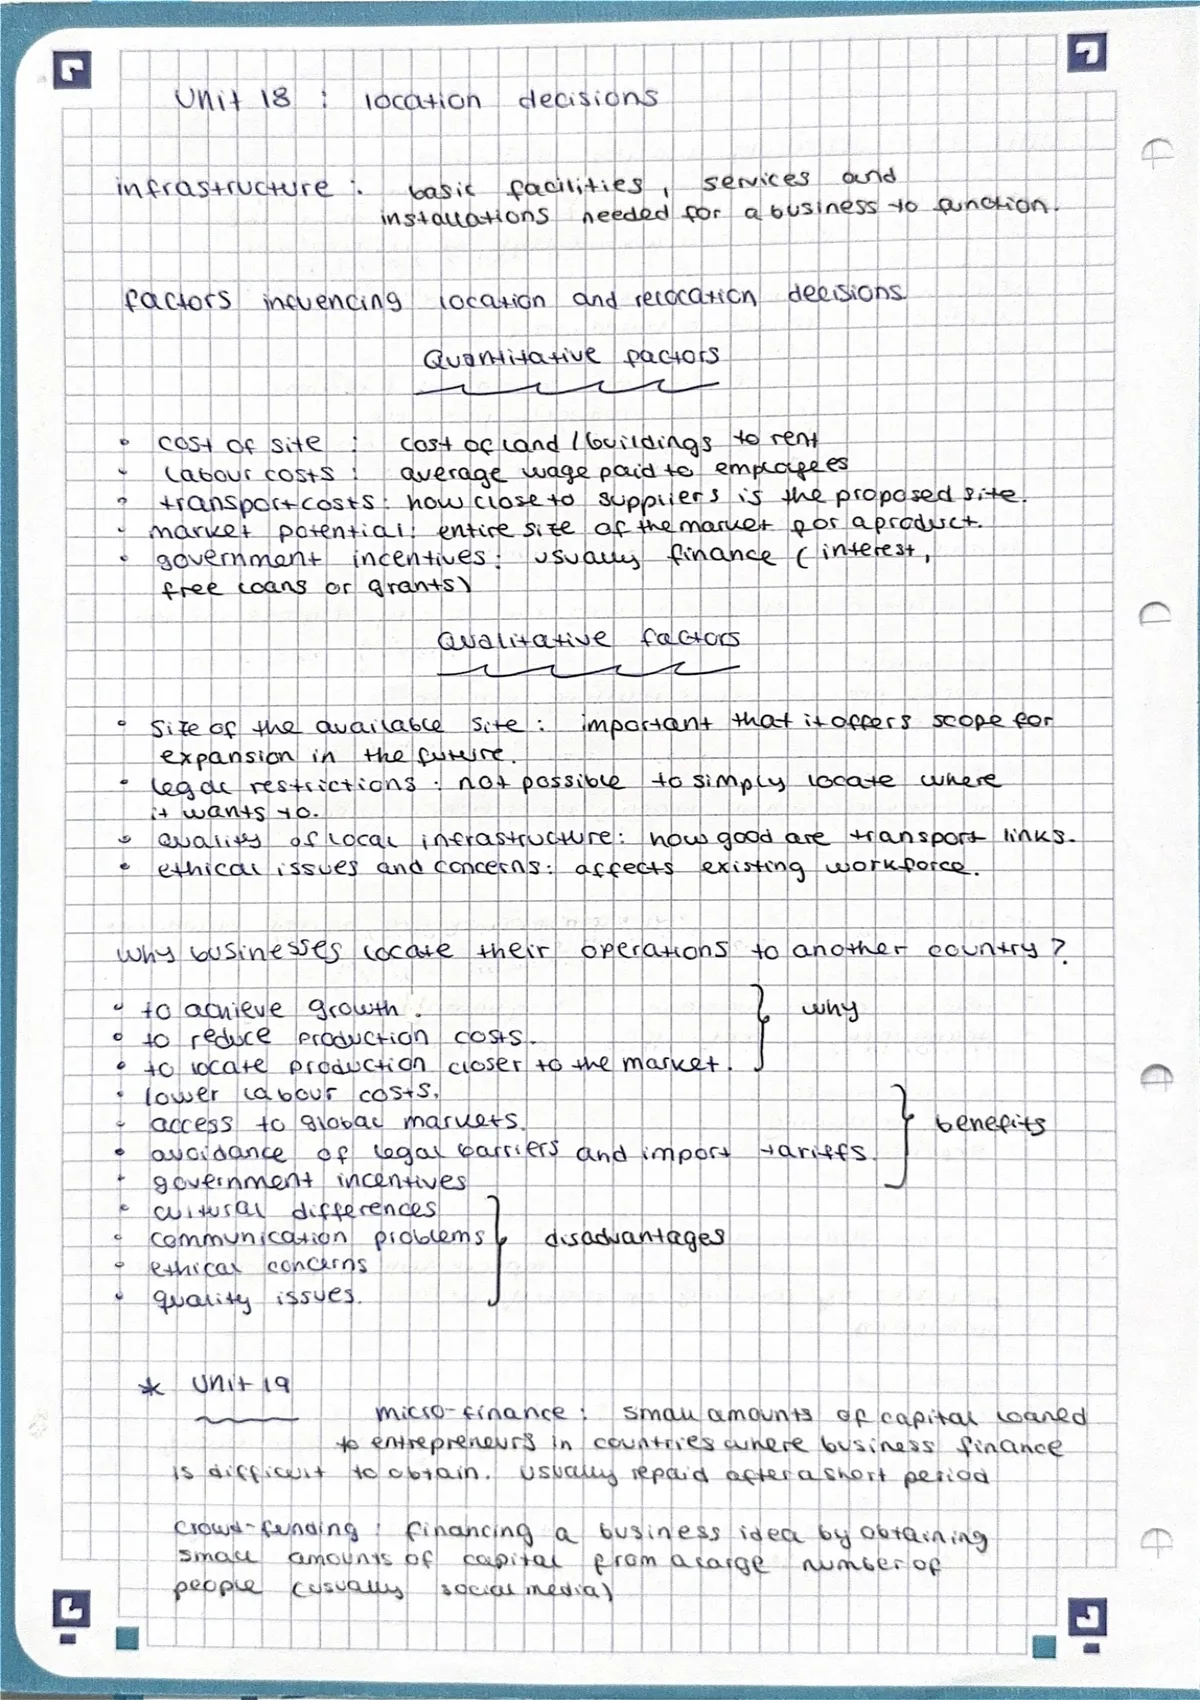 Unit 18 : location decisions
infrastructure : basic facilities, services and
installations needed for a business to function.
factors influencing location and relocation decisions
Quantitative factors
• cost of site : cost of land / buildings to rent
• labour costs : average wage paid to employees
• transport costs : how close to suppliers is the proposed site.
• market potential : entire size of the market for a product.
• government incentives : usually finance (interest,
free loans or grants)
Qualitative factors
• Size of the available site : important that it offers scope for
expansion in the future.
• legal restrictions : not possible to simply locate where
it wants to.
• quality of local infrastructure : how good are transport links.
• ethical issues and concerns : affects existing workforce.
why businesses locate their operations to another country ?
• to achieve growth. why
• to reduce production costs.
• to locate production closer to the market.
• lower labour costs.
• access to global markets. benefits
• avoidance of legal barriers and import tariffs.
• government incentives
• cultural differences
• communication problems disadvantages
• ethical concerns
• quality issues.
* Unit 19
micro-finance : small amounts of capital loaned
to entrepreneurs in countries where business finance
is difficult to obtain. usually repaid after a short period
crowd-funding : financing a business idea by obtaining
small amounts of capital from a large number of
people (usually social media)